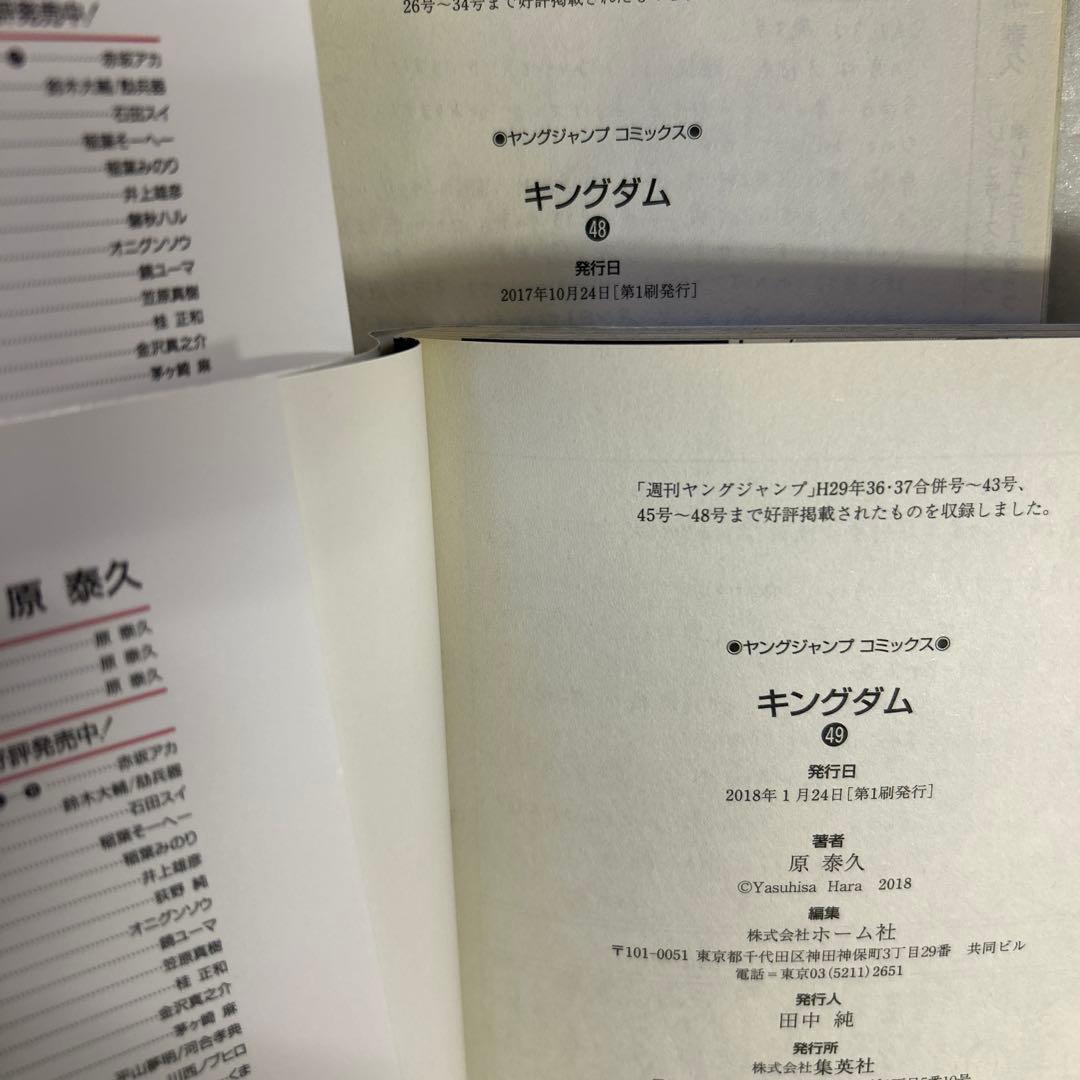 評発売中!
赤坂アカ
鈴木大輔/肋兵器
石田スイ
稲葉そーへー
稲葉みのり
井上雄彦
オニグンソウ
鏡ユーマ
笠原真樹
桂 正和
金沢真之介
茅ヶ崎 麻
26号〜34号まで好評掲載されたも
◉ヤングジャンプ コミックス◉
キングダム
48
発行日
2017年10月24日[第1刷発行]
原 泰久
原 泰久
原 泰久
原 泰久
好評発売中!
赤坂アカ
鈴木大輔/肋兵器
石田スイ
稲葉そーへー
稲葉みのり
井上雄彦
荻野 純
オニグンソウ
鏡ユーマ
笠原真樹
桂 正和
金沢真之介
茅ヶ崎 麻
平山夢明/河合孝典
川西ノブヒロ
「週刊ヤングジャンプ」H29年36・37合併号〜43号、
45号〜48号まで好評掲載されたものを収録しました。
◉ヤングジャンプ コミックス◉
キングダム
49
発行日
2018年 1 月24日[第1刷発行]
著者
原 泰久
©Yasuhisa Hara 2018
編集
株式会社ホーム社
〒101-0051 東京都千代田区神田神保町3丁目29番 共同ビル
電話=東京03(5211)2651
発行人
田中 純
発行所
株式会社集英社